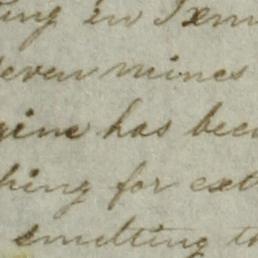 ing in
seven mines
gine has been
hing for ext
smelting th